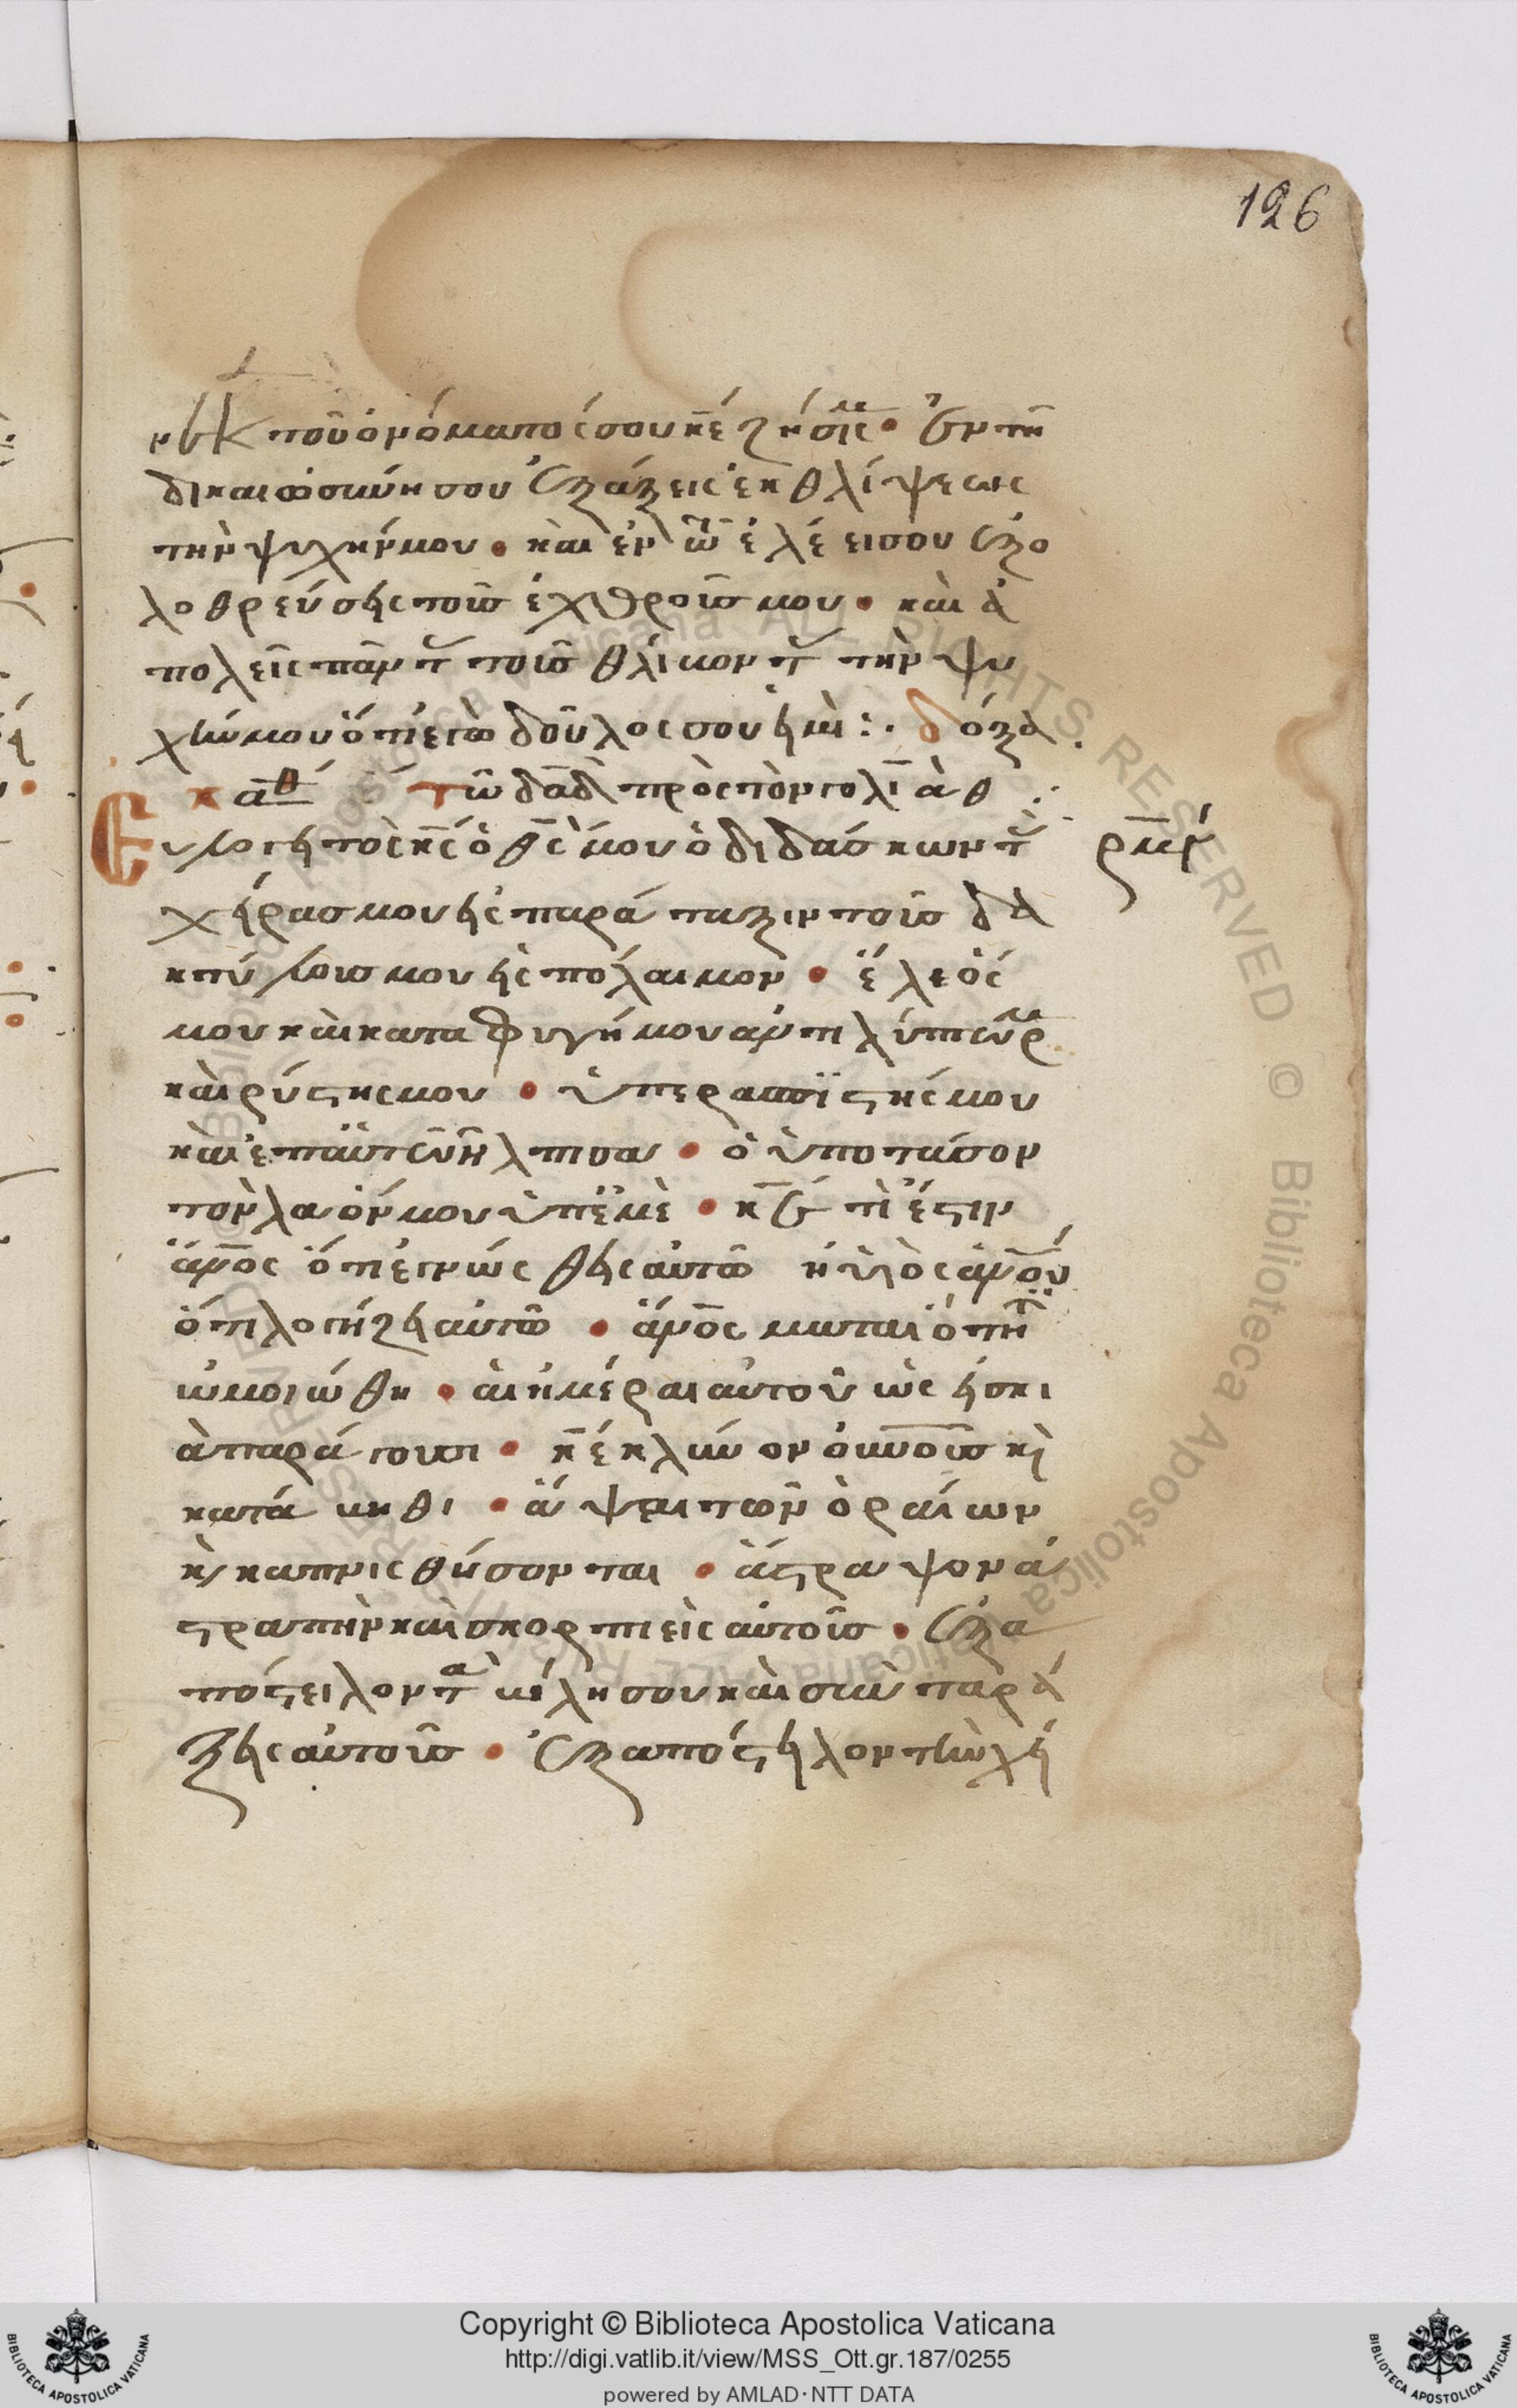 126
νεκ τοῦ ὀνόματός σου κ̅έ ζήσεις· ἐν τῆ
δικαιοσύνη σου ἐξάξεις ἐκ θλίψεως
τὴν ψυχήν μου· καὶ ἐν τῶ ἐλέει σου ἐξο
λοθρεύσης τοὺς ἐχθρούς μου· καὶ ἀ
πολεῖς πάντ τοὺς θλίβοντ τὴν ψυ
χήν μου ὅτι ἐγὼ δοῦλος σου ημὶ :· δόξα
κ αθ Τῶ δα̅δ̅ πρὸς τὸν γολι̅ὰθ
Ευλογητὸς κ̅ς ὁ θ̅ς μου ὁ διδάσκων τ
ρ̅μ̅γ
χήρας μου ης παράταξιν τοὺς δα
κτύλους μου ης πόλαιμον · ἔλεός
μου καὶ καταφυγή μου ἀντιλύπτωρ
καὶ ρύστης μου · ὑπερασπϊστής μου
καὶ ἐπ αὐτῶ ἤλπισα · ὁ ὑποτάσον
τὸν λαόν μου ὑπ ἐμὲ · κ̅ε τί ἐστιν
ἄν̅ος ὅτι ἐγνώσθης αὐτῶ ἢ υἱὸς ἀν̅ου
ὅτι λογήζη αὐτῶ · ἄν̅ος ματαιότητι
ὡμοιώθη · αἱ ἡμέραι αὐτοῦ ὡς ησκι
ὰ παράγουσι · κ̅έ κλῖνον οὐνοὺς κὶ
κατάβηθι · ἅψαι τῶν ὀραίων
κὶ καπνισθήσονται · ἄστραψον ἀ
στραπὴν καὶ σκορπιεὶς αὐτοὺς · ἐξα
πόστειλον τὰ βέλη σου καὶ συνταρά
ξης αὐτοὺς · ἐξαπόστηλον τὴν χή
Copyright © Biblioteca Apostolica Vaticana
http://digi.vatlib.it/view/MSS_Ott.gr.187/0255
powered by AMLAD·NTT DATA